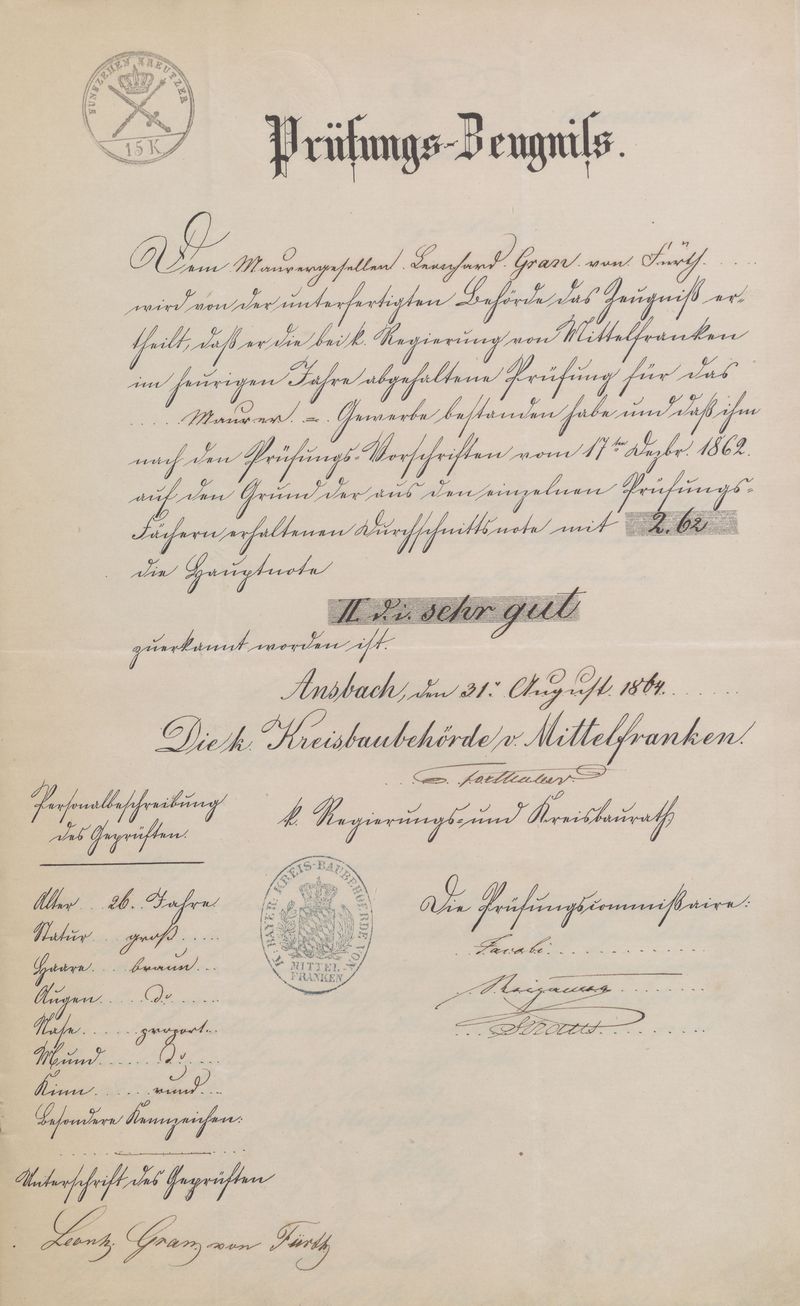 FUNFZEHEN KREUTZER
15 K
Prüfungs-Zeugniss.
Dem Maurergesellen Leonhard Gran von Fürth
wird von der unterfertigten Behörde das Zeugniß er-
theilt, daß er die bei k. Regierung von Mittelfranken
im heurigen Jahre abgehaltene Prüfung für das
Maurer = Gewerbe bestanden habe und daß ihm
nach den Prüfungs-Vorschriften vom 17ten Dezbr. 1862.
auf den Grund der aus den einzelnen Prüfungs-
Fächern erhaltenen Durchschnittsnote mit 2.62
die Hauptnote
II d. i. sehr gut
zuerkannt worden ist.
Ansbach, den 31. August 1864.
Die k. Kreisbaubehörde v. Mittelfranken.
k. Regierungs- und Kreisbaurath
Personalbeschreibung
des Geprüften.
Alter 26. Jahre
Statur groß
Haare braun
Augen do
Nase proport.
Mund do
Kinn rund
Besondere Kennzeichen:
Unterschrift des Geprüften
Leonh. Gran von Fürth
K. BAYER. KREIS-BAUBEHOERDE VON
MITTEL-
FRANKEN
Die Prüfungscommißaire:
Jacobi